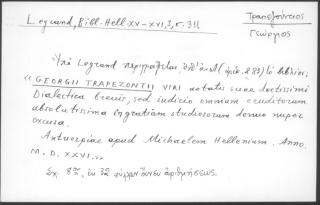 Legrand, Bibl. Hell. XV-XVI, 3, σ. 311
Τραπεζούντιος
Γεώργιος
Ὑπὸ Legrand περιγράφεται, (ἀριθ. 283) τὸ βιβλίον:
"GEORGII TRAPEZONTII VIRI aetatis suae doctissimi
Dialectica brevis, sed iudicio omnium eruditorum
absolutissima in gratiam studiosorum denuo nuper
excusa.
Antverpiae apud Michaelem Hellenium. Anno.
M. D. XXVI."
Σχ. 8ον, ἐκ 32 φύλλων ἄνευ ἀριθμήσεως.